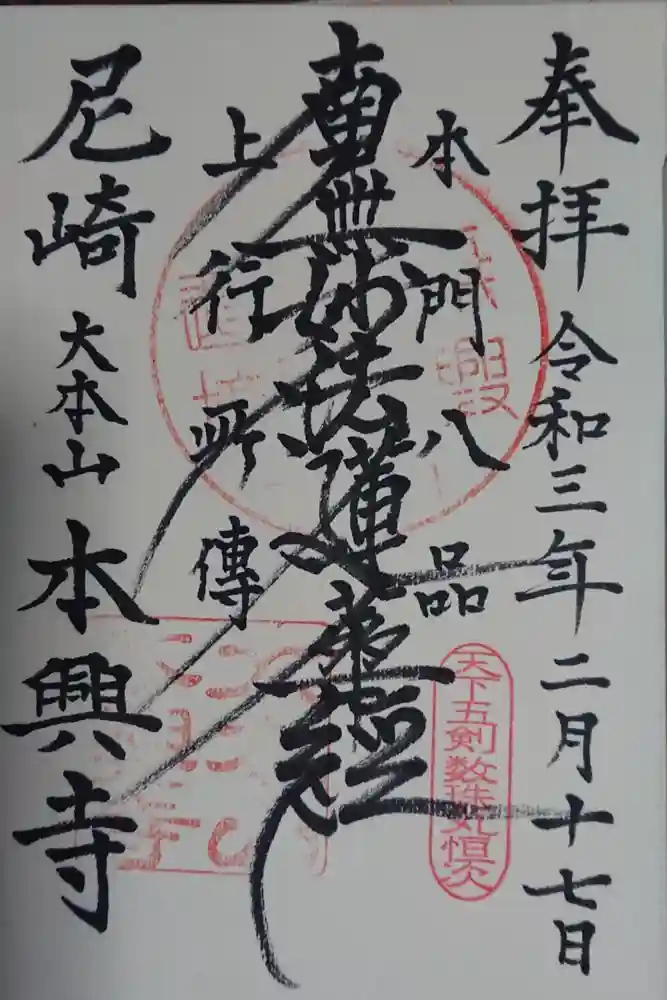 奉拝 令和三年二月十七日
本門八品
南無妙法蓮華経
上行所傳
尼崎 大本山 本興寺
天下五剣数珠丸恒次